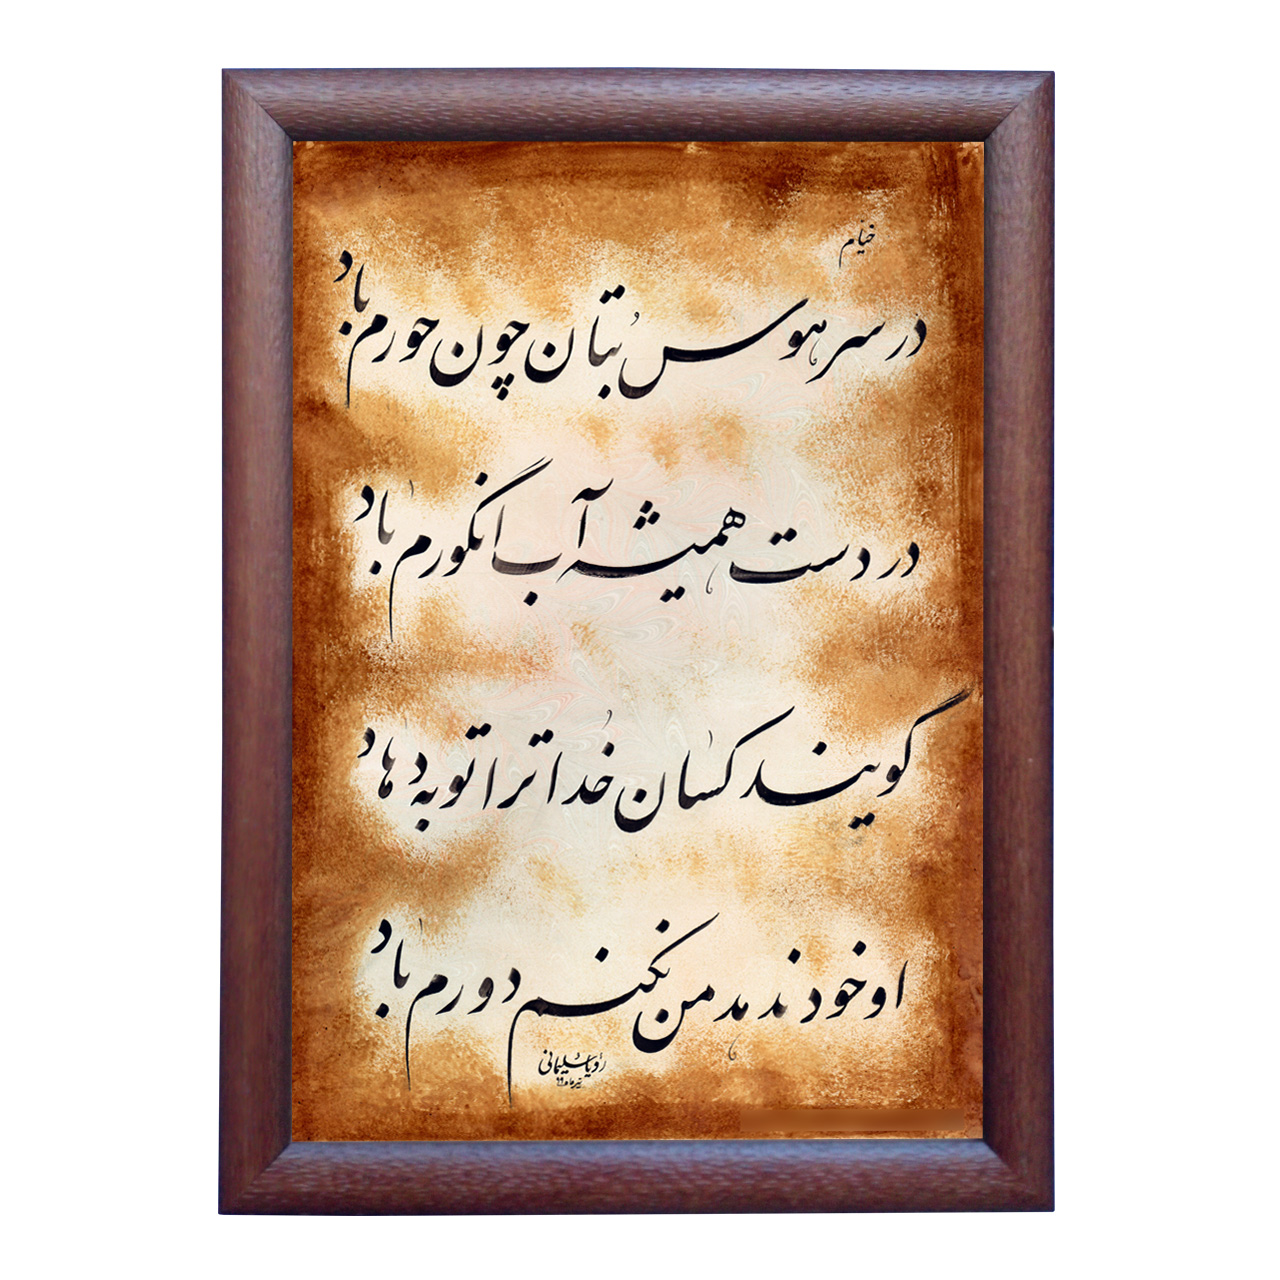 خیام
در سر هوس بُتان چون حورم باد
در دست همیشه آب انگورم باد
گویند کسان خُدا ترا توبه دهاد
او خود ندهد من نکنم دورم باد
رؤیا سُلیمانی
تیرماه ۹۹